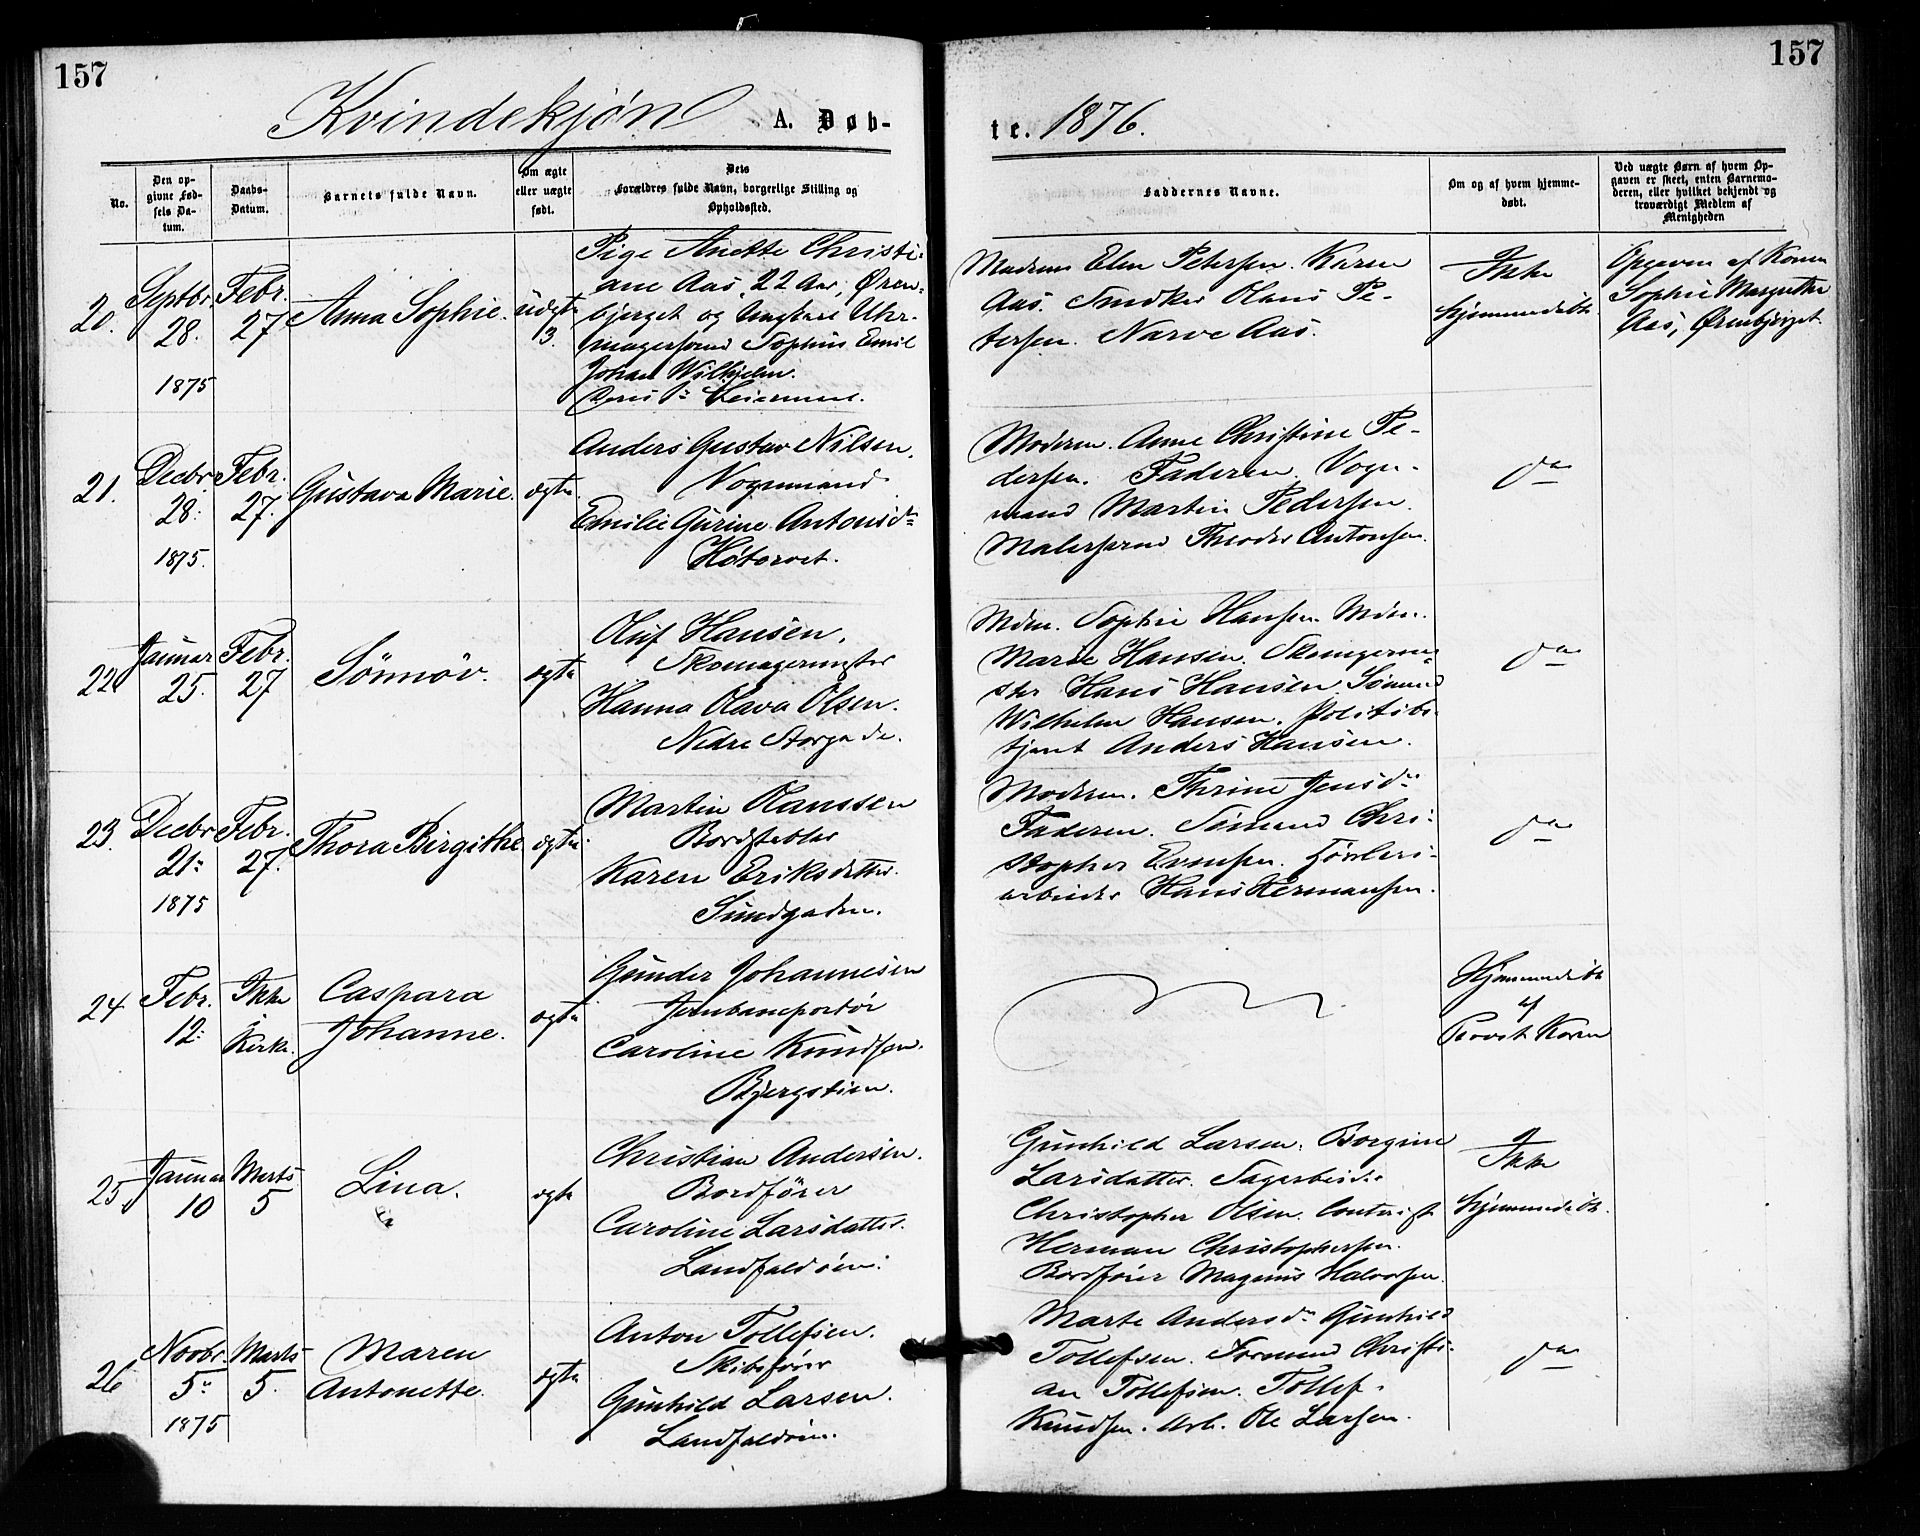 157
157
Kvindekjøn A. Døb-
te. 1876.
No.
Den op-
givne Fød-
sels Da-
tum.
Daabs-
Datum.
Barnets fulde Navn.
Om ægte
eller uægte
født.
Dets
Forældres fulde Navn, borgerlige Stilling og
Opholdssted.
Faddernes Navne.
Om og af hvem hjemme-
døbt.
Ved uægte Børn af hvem Op-
gaven er skeet, enten Barnemo-
deren, eller hvilket bekjendt og
troværdigt Medlem af
Menigheden
20.
Septbr.
28.
1875
Febr.
27
Anna Sophie.
uægte
13.
Pige Anette Christi-
ane Aas, 22 Aar, Øren-
bjerget og Ungkarl Uhr-
magersvend Sophus Emil
Johan Wilhelm.
Leiermaal.
Madam Elen Petersen. Karen
Aas. Snedker Olaus Pe-
tersen. Narve Aas.
Ikke
hjemmedøbt.
Opgaven af Konen
Sophie Margrethe
Aas, Ørenbjerget.
21.
Decbr.
28.
1875.
Febr.
27.
Gustava Marie.
ægte.
Anders Gustav Nilsen,
Vognmand.
Emilie Gurine Antonsdr
Høtorvet.
Moderen. Anne Christine Pe-
dersen. Faderen, Vogn-
mand Martin Pedersen.
Malersvend Theodor Antonsen.
do
22.
Januar
25.
Febr.
27
Sønnøv.
ægte
Oluf Hansen,
Skomagermester
Hanna Olava Olsen.
Nedre Storgade.
Mdm. Sophie Hansen. Mdm.
Marie Hansen. Skomagerme-
ster Hans Hansen. Sømand
Wilhelm Hansen. Politibe-
tjent Anders Hansen.
do
23.
Decbr
21.
1875
Febr.
27.
Thora Birgithe
ægte.
Martin Hanssen
Bordstabler
Karen Eriksdatter.
Sundgaden.
Moderen. Thrine Jensdr
Faderen. Sømand Chri-
stopher Evensen.
arbeider Hans Hermansen.
do
24
Febr.
12.
Ikke
i
Kirke.
Caspara
Johanne.
ægte
Gunder Johannesen
Jernbaneportør
Caroline Knudsen.
Bjergstien.
Hjemmedøbt
af
Provst Koren
25.
Januar
10
Marts
5
Lina.
ægte
Christian Andersen.
Bordfører
Caroline Larsdatter.
Landfaldøen.
Gunhild Larsen. Borgine
Larsdatter. Sagarbeider
Christopher Olsen. Contorist
Herman Christophersen.
Bordfører Magnus Halvorsen.
Ikke
hjemmedøbt.
26
Novbr.
5.
1875
Marts
5.
Maren
Antonette.
ægte
Anton Tollefsen.
Skibsfører
Gunhild Larsen.
Landfaldøen.
Marte Andersdr Gunhild
Tollefsen. Formand Christi-
an Tollefsen. Tollef
Knudsen. Arb. Ole Larsen.
do